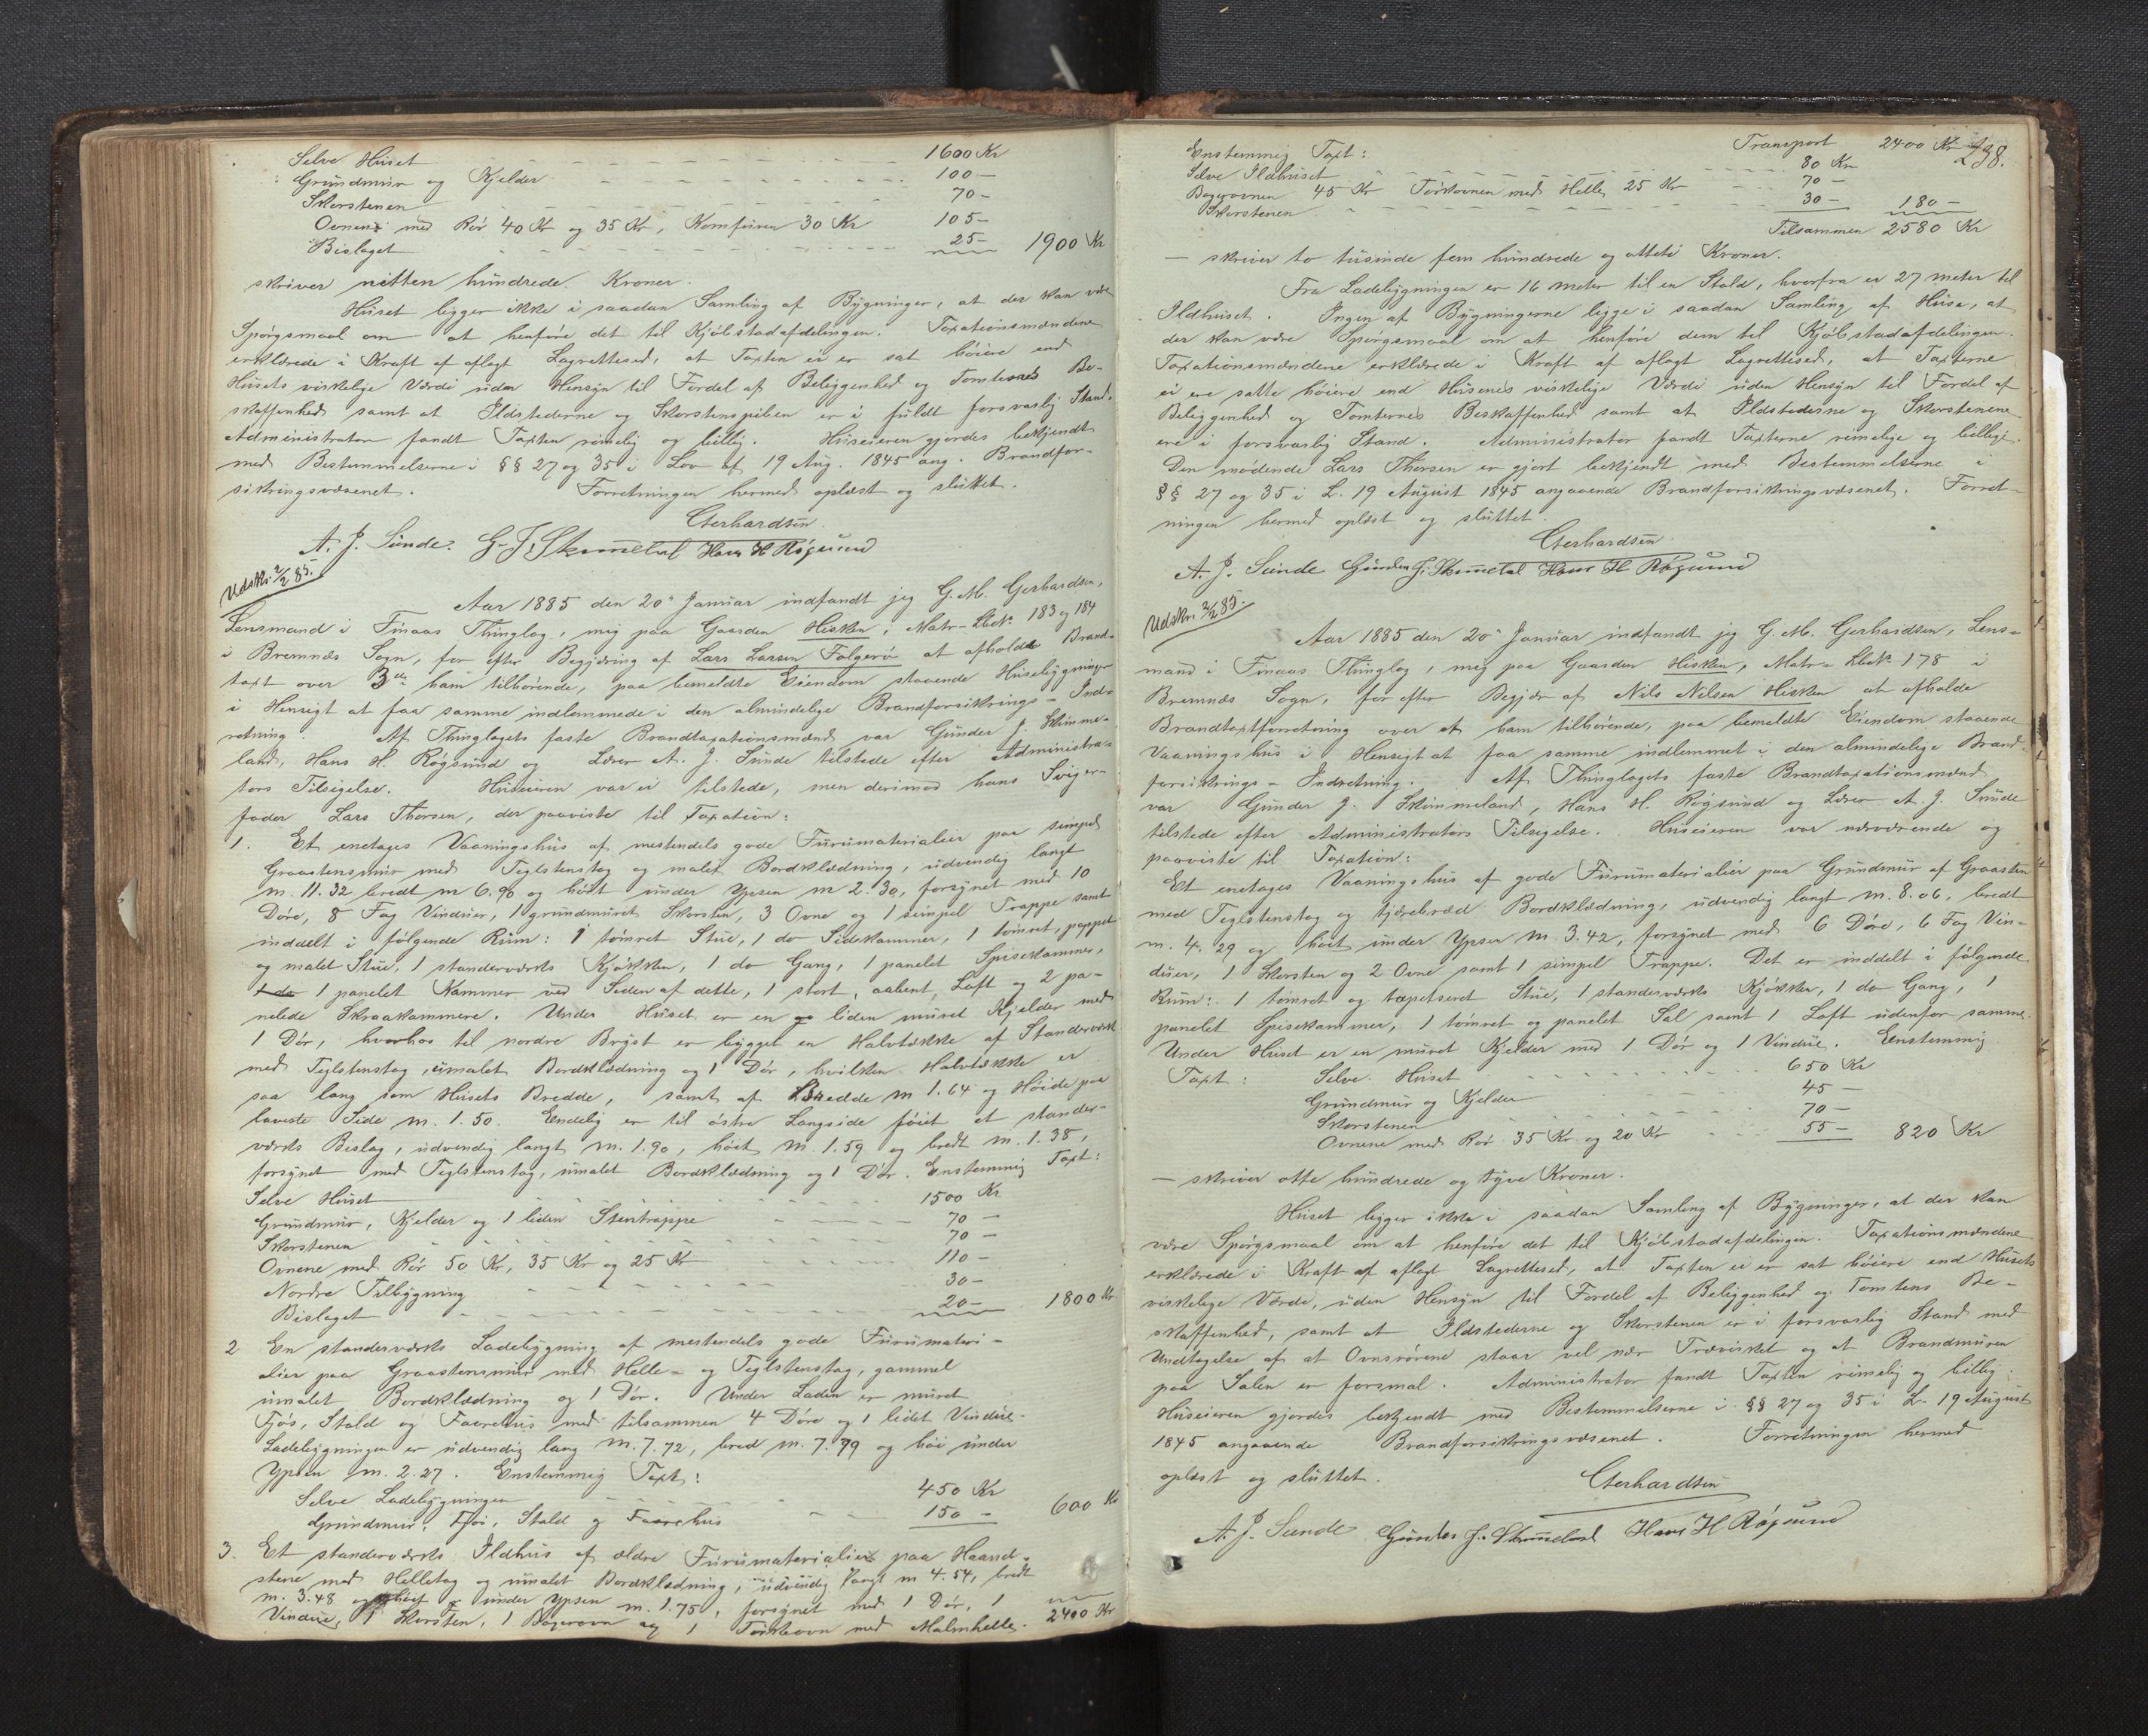 Selve Huset 1600 Kr
Grundmur og Kjelder 100 —
Skorstenen 70 —
Ovnene med Rör 40 Kr og 35 Kr, Komfuren 30 Kr 105 —
Bislaget 25 — 1900 Kr
skriver nitten hundrede Kroner.
Huset ligger ikke i saadan Samling af Bygninger, at der kan være
Spörgsmaal om at henföre det til Kjöbstadafdelingen. Taxationsmændene
erklærede i Kraft af aflagt Lagrettesed, at Taxten ei er sat höiere end
Husets virkelige Værdi uden Hensyn til Fordel af Beliggenhed og Tomternes Be-
skaffenhed samt at Ildstederne og Skorstenspiben er i fuldt forsvarlig Stand.
Administrator fandt Taxten rimelig og billig. Huseieren gjordes bekjendt
med Bestemmelserne i §§ 27 og 35 i Lov af 19 Aug. 1845 ang. Brandfor-
sikringsvæsenet. Forretningen hermed oplæst og sluttet.
Gerhardsen
A. J. Sunde. G. J. Skimmeland Hans H Rögsund
Udskr. 2/2 85.
Aar 1885 den 20de Januar indfandt jeg G. M. Gerhardsen,
Lensmand i Finaas Thinglag, mig paa Gaarden Hisken, Matr- Lbek. 183 og 184
i Bremnæs Sogn, for efter Begjæring af Lars Larsen Folgerö at afholde Brand-
taxt over 3de ham tilhörende, paa bemeldte Eiendom staaende Husebygninger
i Hensigt at faa samme indlemmede i den almindelige Brandforsikrings- Ind-
retning. Af Thinglagets faste Brandtaxationsmænd var Gunder J. Skimme-
land, Hans H. Rögsund og Lærer A. J. Sunde tilstede efter Administra-
tors Tilsigelse. Huseieren var ei tilstede, men derimod hans Sviger-
fader Lars Thorsen, der paaviste til Taxation:
1. Et enetages Vaaningshus af mestendels gode Furumaterialier paa simpel
Graastensmur med Teglstenstag og malet Bordklædning, udvendig langt
m. 11.32 bredt m 6.90 og höit under Ypsen m 2.30, forsynet med 10
Döre, 8 Fag Vinduer, 1 grundmuret Skorsten, 3 Ovne og 1 simpel Trappe samt
inddelt i fölgende Rum: 1 tömret Stue, 1 do Sidekammer, 1 tömret, pappet
og malet Stue, 1 standerværks Kjökken, 1 do Gang, 1 panelet Spisekammer,
1 do 1 panelet Kammer ved Siden af dette, 1 stort, aabent, Loft og 2 pa-
nelede Skraakammere. Under Huset er en liden muret Kjelder med
1 Dör, hvorhos til nordre Bryst er bygget en Halvtække af Standerværk
med Teglstenstag, umalet Bordklædning og 1 Dör, hvilken Halvtække er
saa lang som Husets Bredde, samt af Bredde m 1.64 og Höide paa
laveste Side m. 1.50. Endelig er til östre Langside föiet et stander-
værks Bislag, udvendig langt m. 1.90, höit m. 1.59 og bredt m. 1.38,
forsynet med Teglstenstag, umalet Bordklædning og 1 Dör. Enstemmig Taxt:
Selve Huset 1500 Kr
Grundmur, Kjelder og 1 liden Stentrappe 70 —
Skorstenen 70 —
Ovnene med Rör 50 Kr, 35 Kr og 25 Kr 110 —
Nordre Tilbygning 30 —
Bislaget 20 — 1800 Kr
2 En standerværks Ladebygning af mestendels gode Furumateri-
alier paa Graastensmur med Helle- og Teglstenstag, gammel
umalet Bordklædning og 1 Dör. Under Laden er muret
Fjös, Stald og Faarehus med tilsammen 4 Döre og 1 lidet Vindue.
Ladebygningen er udvendig lang m. 7.72, bred m. 7.79 og höi under
Ypsen m. 2.27. Enstemmig Taxt:
Selve Ladebygningen 450 Kr
Grundmur, Fjös, Stald og Faarehus 150 — 600 Kr
3. Et standerværks Ildhus af ældre Furumaterialier paa Haand-
stene med Helletag og umalet Bordklædning, udvendig langt m 4.54, bredt
m. 3.48 og höit under Ypsen m. 1.75, forsynet med 1 Dör, 1
Vindue, 1 Skorsten, 1 Bagerovn og 1 Törkeovn med Malmhelle. 2400 Kr
238.
Transport 2400 Kr
Enstemmig Taxt:
Selve Ildhuset 80 Kr
Bagerovnen 45 Kr Törkovnen med Helle 25 Kr 70 —
Skorstenen 30 — 180 —
Tilsammen 2580 Kr
— skriver to tusinde fem hundrede og otteti Kroner.
Fra Ladebygningen er 16 meter til en Stald, hvorfra er 27 meter til
Ildhuset. Ingen af Bygningerne ligge i saadan Samling af Huse, at
der kan være Spörgsmaal om at henföre dem til Kjöbstadafdelingen.
Taxationsmændene erklærede i Kraft af aflagt Lagrettesed, at Taxterne
ei ere satte höiere end Husenes virkelige Værdi uden Hensyn til Fordel af
Beliggenhed og Tomternes Beskaffenhed samt at Ildstederne og Skorstenene
ere i forsvarlig Stand. Administrator fandt Taxterne rimelige og billige.
Den mödende Lars Thorsen er gjort bekjendt med Bestemmelserne i
§§ 27 og 35 i L. 19 August 1845 angaaende Brandforsikringsvæsenet. Forret-
ningen hermed oplæst og sluttet.
Gerhardsen
A. J. Sunde Gunder J. Skimmeland Hans H Rögsund
Udskr. 2/2 85.
Aar 1885 den 20de Januar indfandt jeg G. M. Gerhardsen, Lens-
mand i Finaas Thinglag, mig paa Gaarden Hisken, Matr- Lbek 178 i
Bremnæs Sogn, for efter Begjær af Nils Nilsen Hisken at afholde
Brandtaxtforretning over et ham tilhörende, paa bemeldte Eiendom staaende
Vaaningshus i Hensigt at faa samme indlemmet i den almindelige Brand-
forsikrings- Indretning. Af Thinglagets faste Brandtaxationsmænd
var Gunder J. Skimmeland, Hans H. Rögsund og Lærer A. J. Sunde
tilstede efter Administrators Tilsigelse. Huseieren var nærværende og
paaviste til Taxation:
Et enetages Vaaningshus af gode Furumaterialier paa Grundmur af Graasten
med Teglstenstag og tjærebræd Bordklædning, udvendig langt m. 8.06, bredt
m. 4.29 og höit under Ypsen m. 3.42, forsynet med 6 Döre, 6 Fag Vin-
duer, 1 Skorsten og 2 Ovne samt 1 simpel Trappe. Det er inddelt i fölgende
Rum: 1 tömret og tapetseret Stue, 1 standerværks Kjökken, 1 do Gang, 1
panelet Spisekammer, 1 tömret og panelet Sal samt 1 Loft udenfor samme.
Under Huset er en muret Kjelder med 1 Dör og 1 Vindue. Enstemmig
Taxt: Selve Huset 650 Kr
Grundmur og Kjelder 45 —
Skorstenen 70 —
Ovnene med Rör 35 Kr og 20 Kr 55 — 820 Kr
— skriver otte hundrede og tyve Kroner.
Huset ligger ikke i saadan Samling af Bygninger, at der kan
være Spörgsmaal om at henföre det til Kjöbstadafdelingen. Taxationsmændene
erklærede i Kraft af aflagt Lagrettesed, at Taxten ei er sat höiere end Husets
virkelige Værdi, uden Hensyn til Fordel af Beliggenhed og Tomtens Be-
skaffenhed, samt at Ildstederne og Skorstenen er i forsvarlig Stand med
Undtagelse af at Ovnsrörene staar vel nær Trævirket og at Brandmuren
paa Salen er forsmal. Administrator fandt Taxten rimelig og billig.
Huseieren gjordes bekjendt med Bestemmelserne i §§ 27 og 35 i L. 19 August
1845 angaaende Brandforsikringsvæsenet. Forretningen hermed
oplæst og sluttet.
Gerhardsen
A. J. Sunde Gunder J. Skimmeland Hans H Rögsund